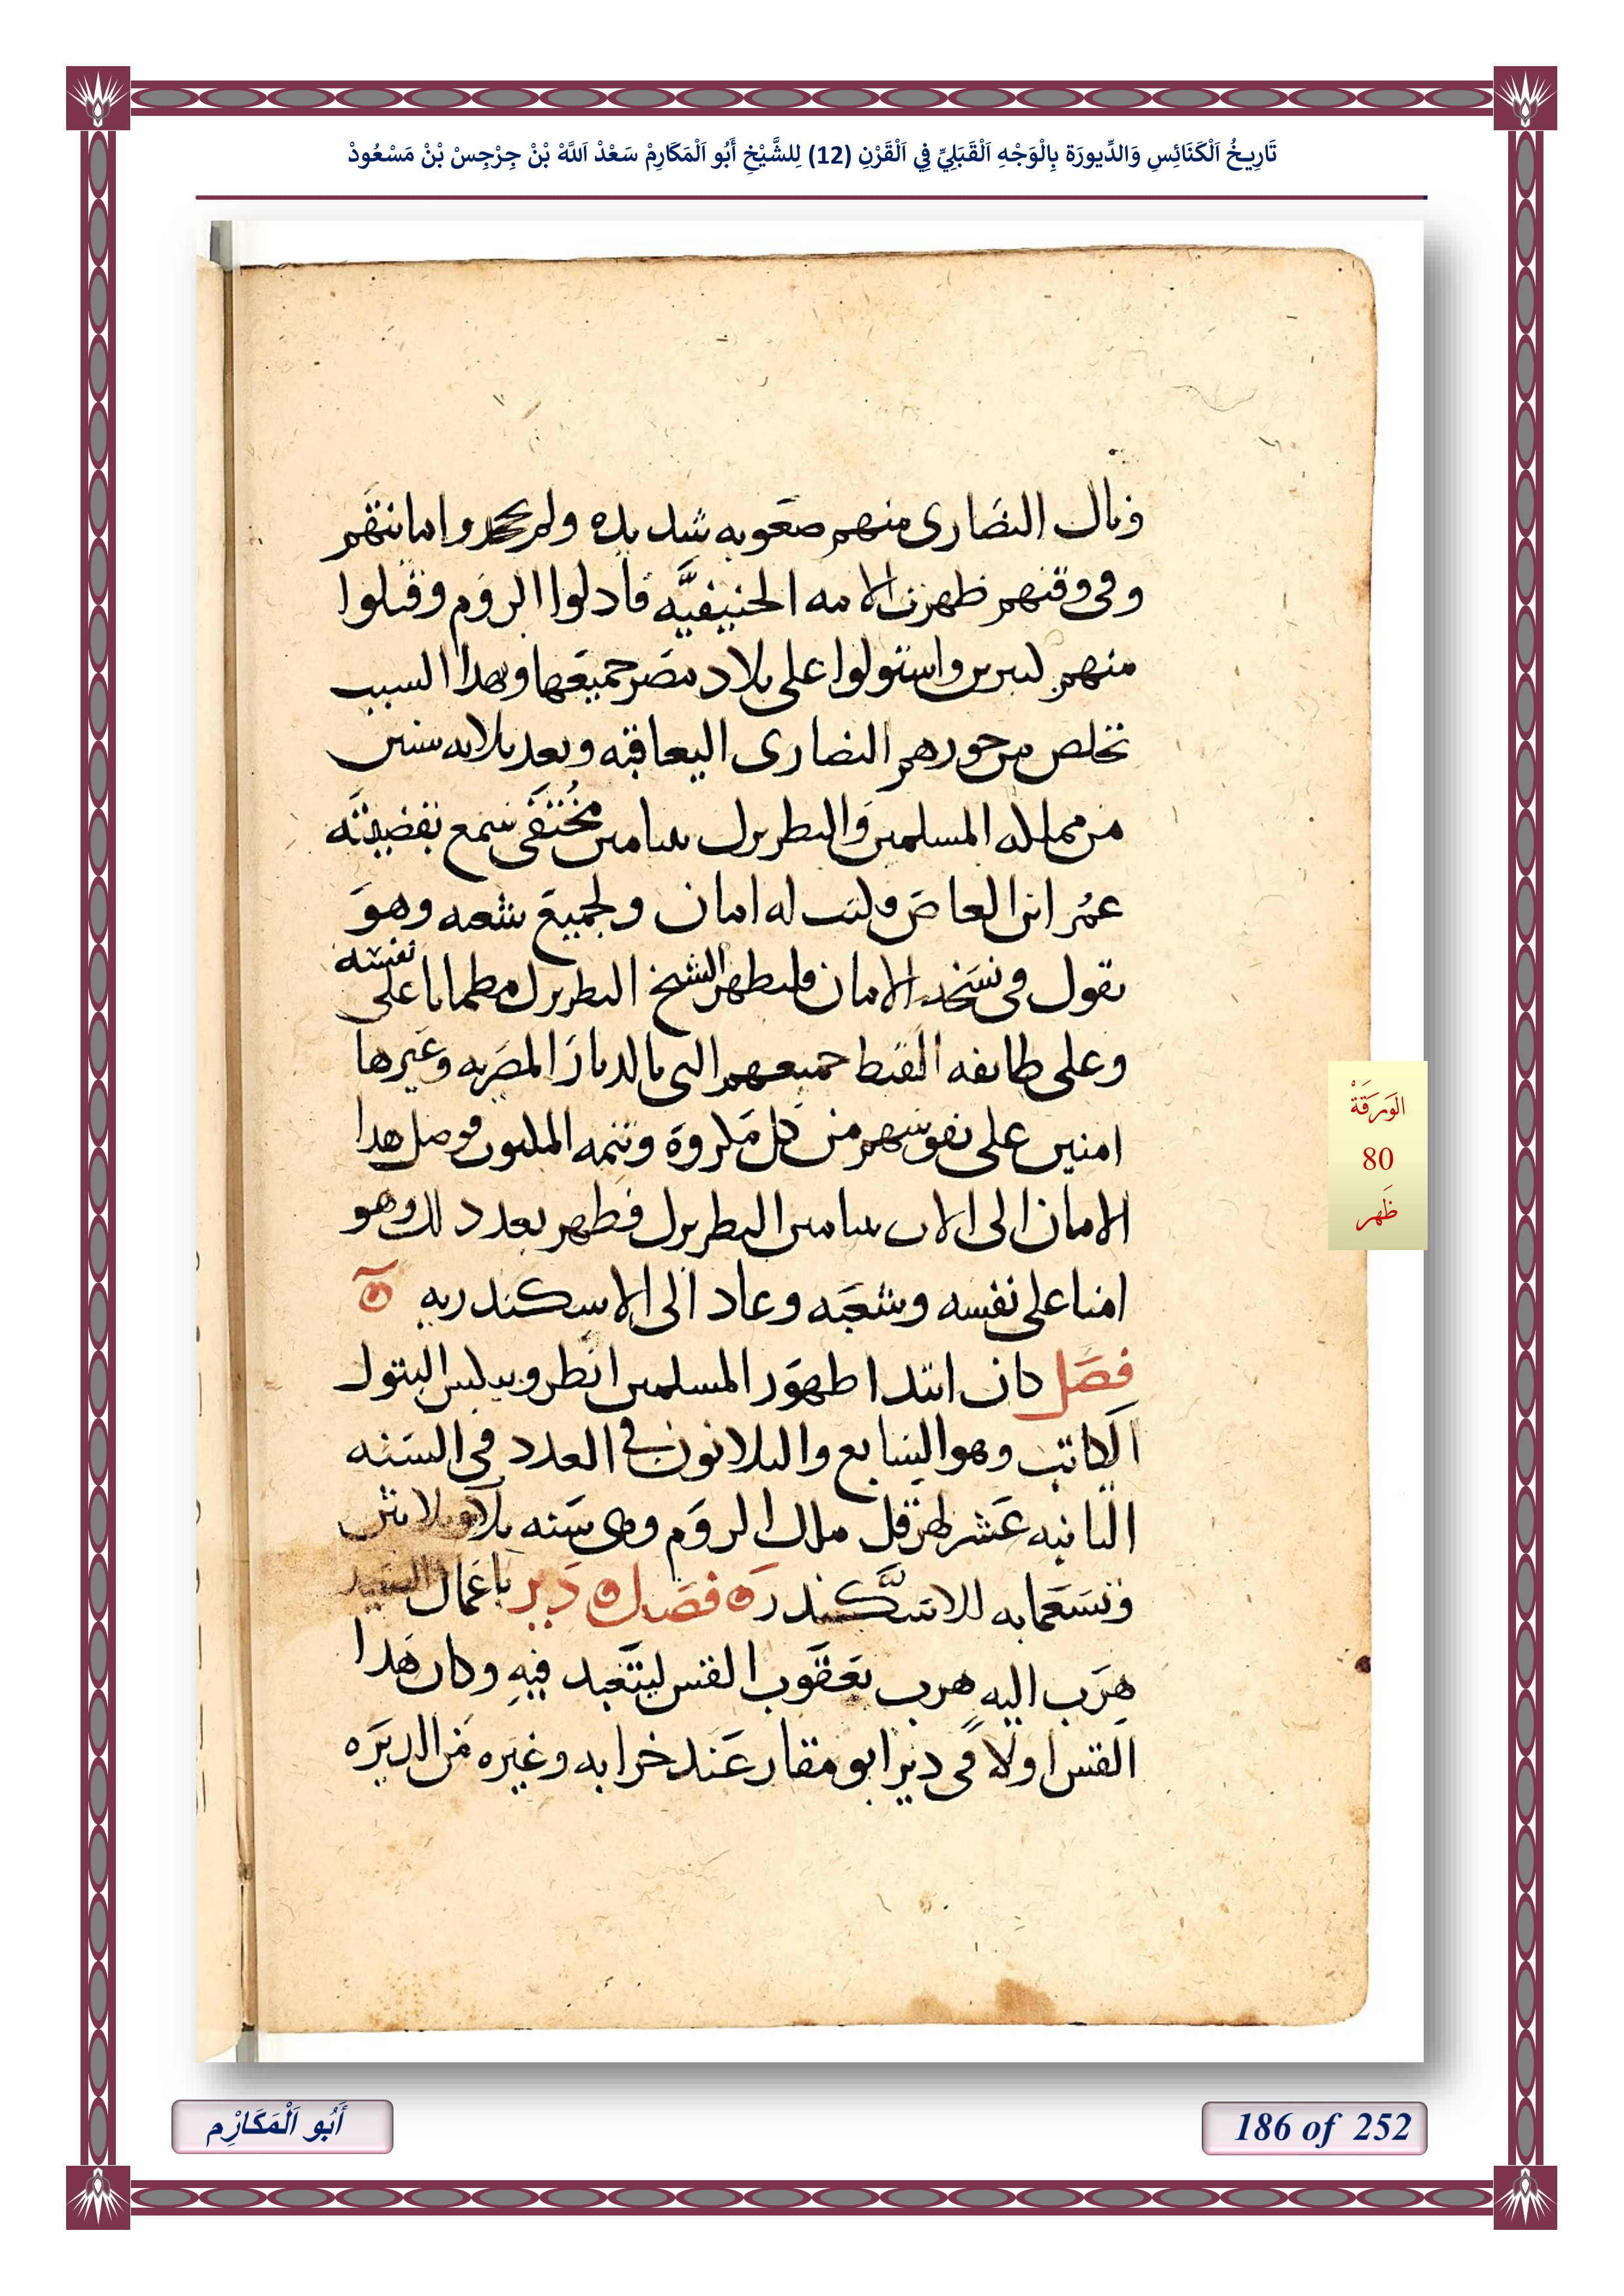 تَارِيخُ اَلْكَنَائِسِ وَالدِّيورَة بِالْوَجْهِ اَلْقَبَلِيِّ فِي اَلْقَرْنِ (12) لِلشَّيْخِ أَبُو اَلْمَكَارِمْ سَعْدْ اَللَّهْ بْنْ جِرْجِسْ بْنْ مَسْعُودْ
ونال النصارى منهم صعوبه شديده ولم يجدوا اما نتقم
وفى وقتهم ظهرت الامه الحنيفيَّه فادلوا الروم وقتلوا
منهم كتيرين واستولوا على بلاد مصر جميعها وبهدا السبب
تخلص من جورهم النصارى اليعاقبه وبعد تلاته سنين
من مملكه المسلمين والبطريرك بنيامين مُختفى سمع بقضيته
عمُر ابن العاص وكتب له امان ولجميع شعبه وهو
يقول فى نسخه الامان فليظهر الشيخ البطريرك مطمانا على نفسه
وعلى طايفه القبط جميعهم التى بالديار المصريه وغيرها
امنين على نفوسهم من كل مكروه وتتمه المكتوب فوصل هدا
الامان الى الاب بنيامين البطريرك فظهر بعد دلك وهو
امنا على نفسه وشعبه وعاد الى الاسكندريه
فصل كان ابتدا ظهور المسلمين البتول
الكاتب وهو السابع والتلاتون في العدد فى السنه
التانيه عشر لهرقل ملك الروم وهى سنه
للاسكندر فصل دير باعمال
هرب اليه هرب يعقوب القس ليتعبد فيه وكان هدا
القس اولًا فى دير ابو مقار عند خرابه وغيره من الديره
الوَرَقَةْ
80
ظَهر
أَبُو اَلْمَكَارِْم
186 of 252